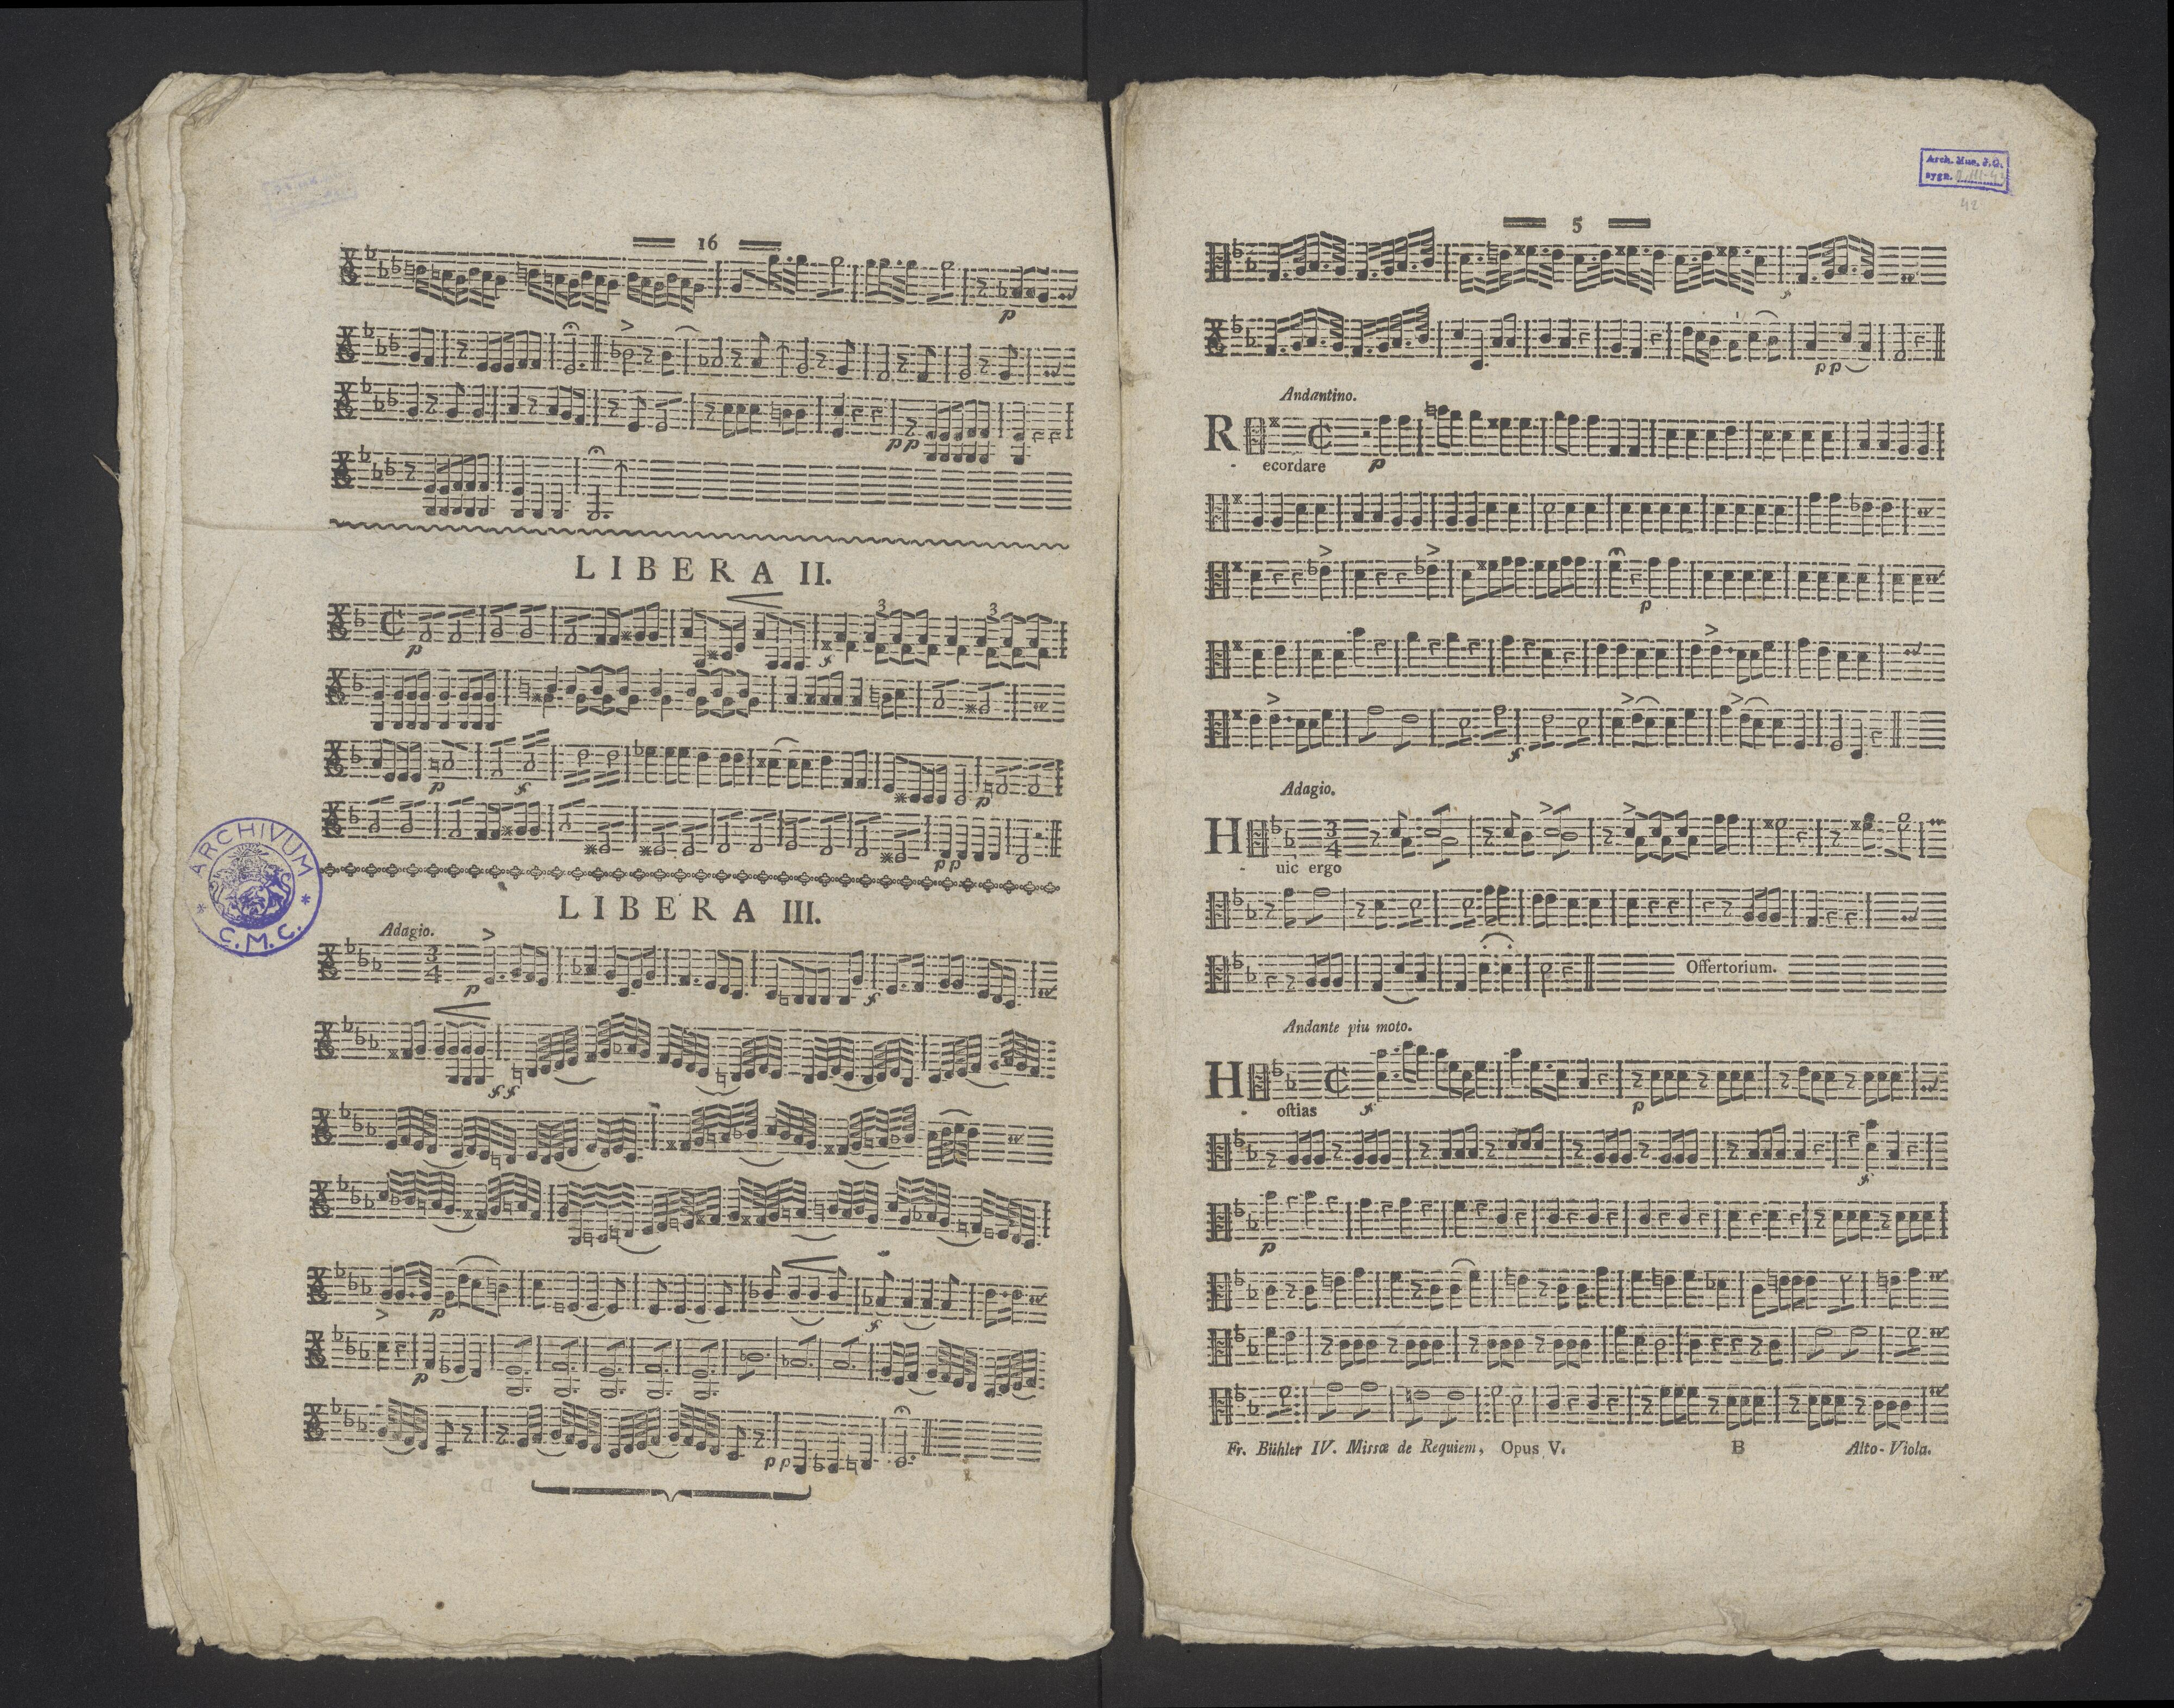 16
p
LIBERA II.
p
3
3
f
p
f
p
pp
LIBERA III.
Adagio.
3
4
p
f
ff
p
f
p
pp
ARCHIVUM
* C.M.C. *
Arch. Mus. J.G.
sygn.
42
5
f
pp
Andantino.
Recordare
p
p
f
Adagio.
Huic ergo
3
4
Offertorium.
Andante piu moto.
Hoſtias
f
p
f
p
Fr. Bühler IV. Missæ de Requiem, Opus V. B Alto-Viola.